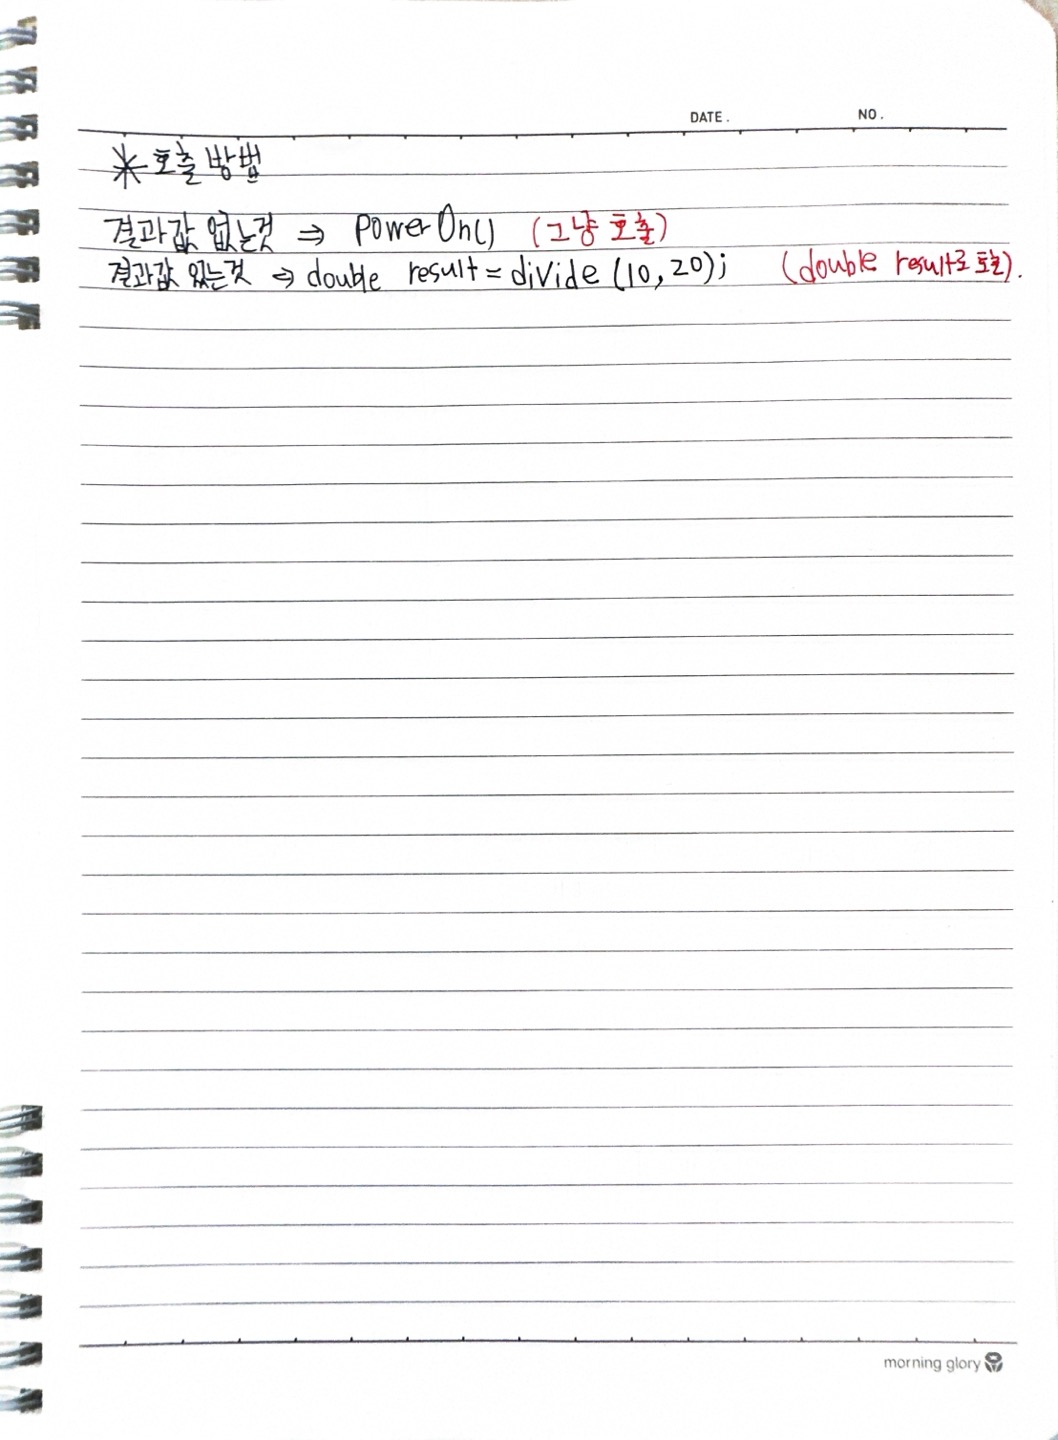 DATE. NO.
* 호출 방법
결과값 없는것 ⇒ powerOn() (그냥 호출)
결과값 있는것 ⇒ double result = divide (10, 20); (double result로 호출).
morning glory